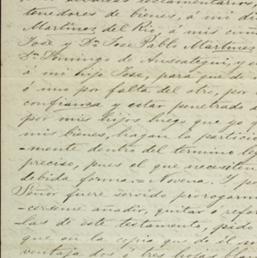 tenedores de bienes, á mi
Martinez del Rio, á mis
José y Dn José Pablo Martinez
Dn Domingo de Ansoategui, y
á mi hijo José, para que
ó uno por falta del otro, por
confianza y estar penetrado
por mis hijos luego que yo
mis bienes, hagan la particio
-mente dentro del termino
preciso, pues el que necesiten
debida forma.=Novena. Y
Señor fuere servido prorogarme
añadir, quitar ó
-las de este testamento, pido
que en la copia que de él
ventaja dos ó tres hojas